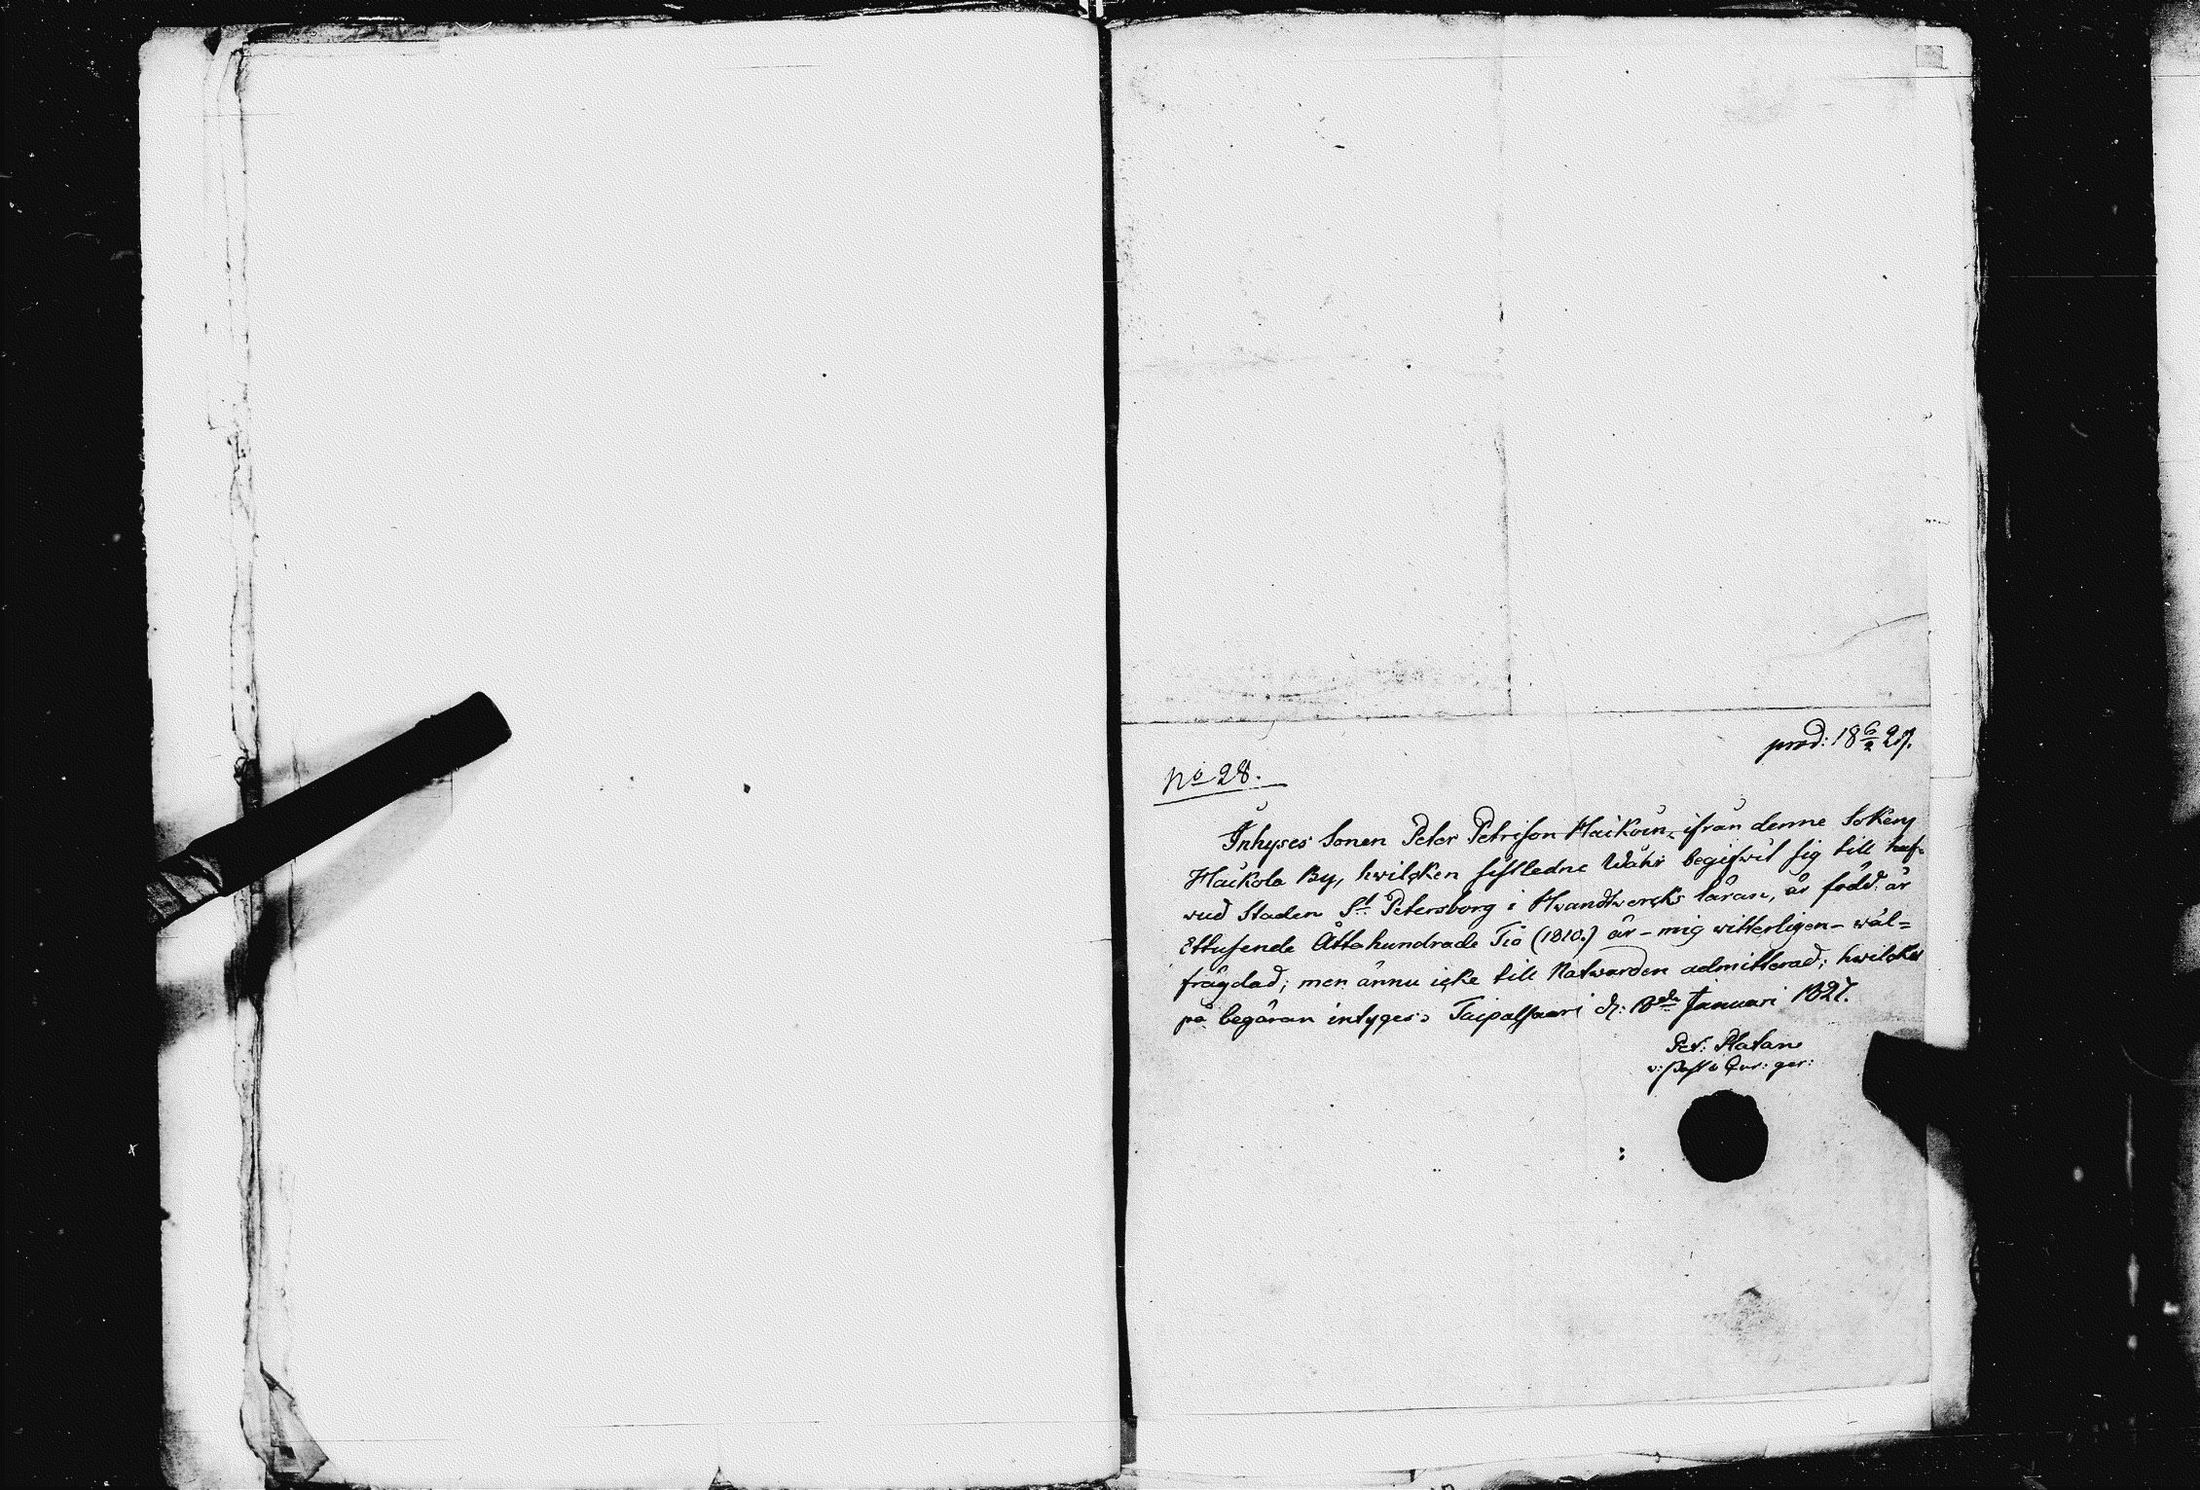 prod: 18 6/2 27.
No 28.
Inhyses Sonen Peter Petrison Haikoin, ifrån denne Sokens
Haikola By, hwilcken sistledne Wåhr begifwit sig till huf-
wud Staden St. Petersborg i Hvandtwercks läran, är född år
Ettusende Åttahundrade Tio (1810.) är - mig witterligen - wäl=
frägdad; men ännu icke till Natwarden admitterad; hwilcket
på begäran intyges. Taipalsaari d: 18de Januari 1827.
Pet: Platan
v: Past: &